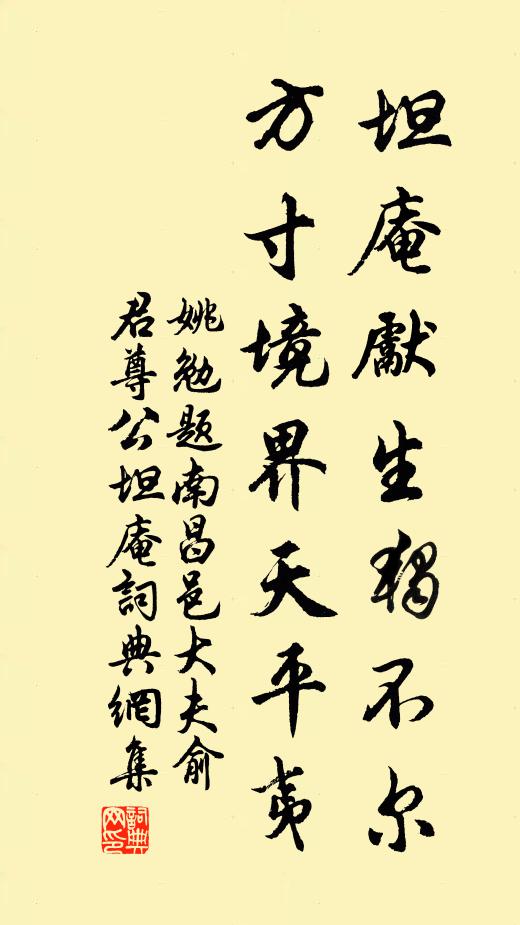 坦庵獻生獨不尔
方寸境界天平夷
姚勉題南昌邑大夫俞
君尊公坦庵詞典網集
詞典
网印